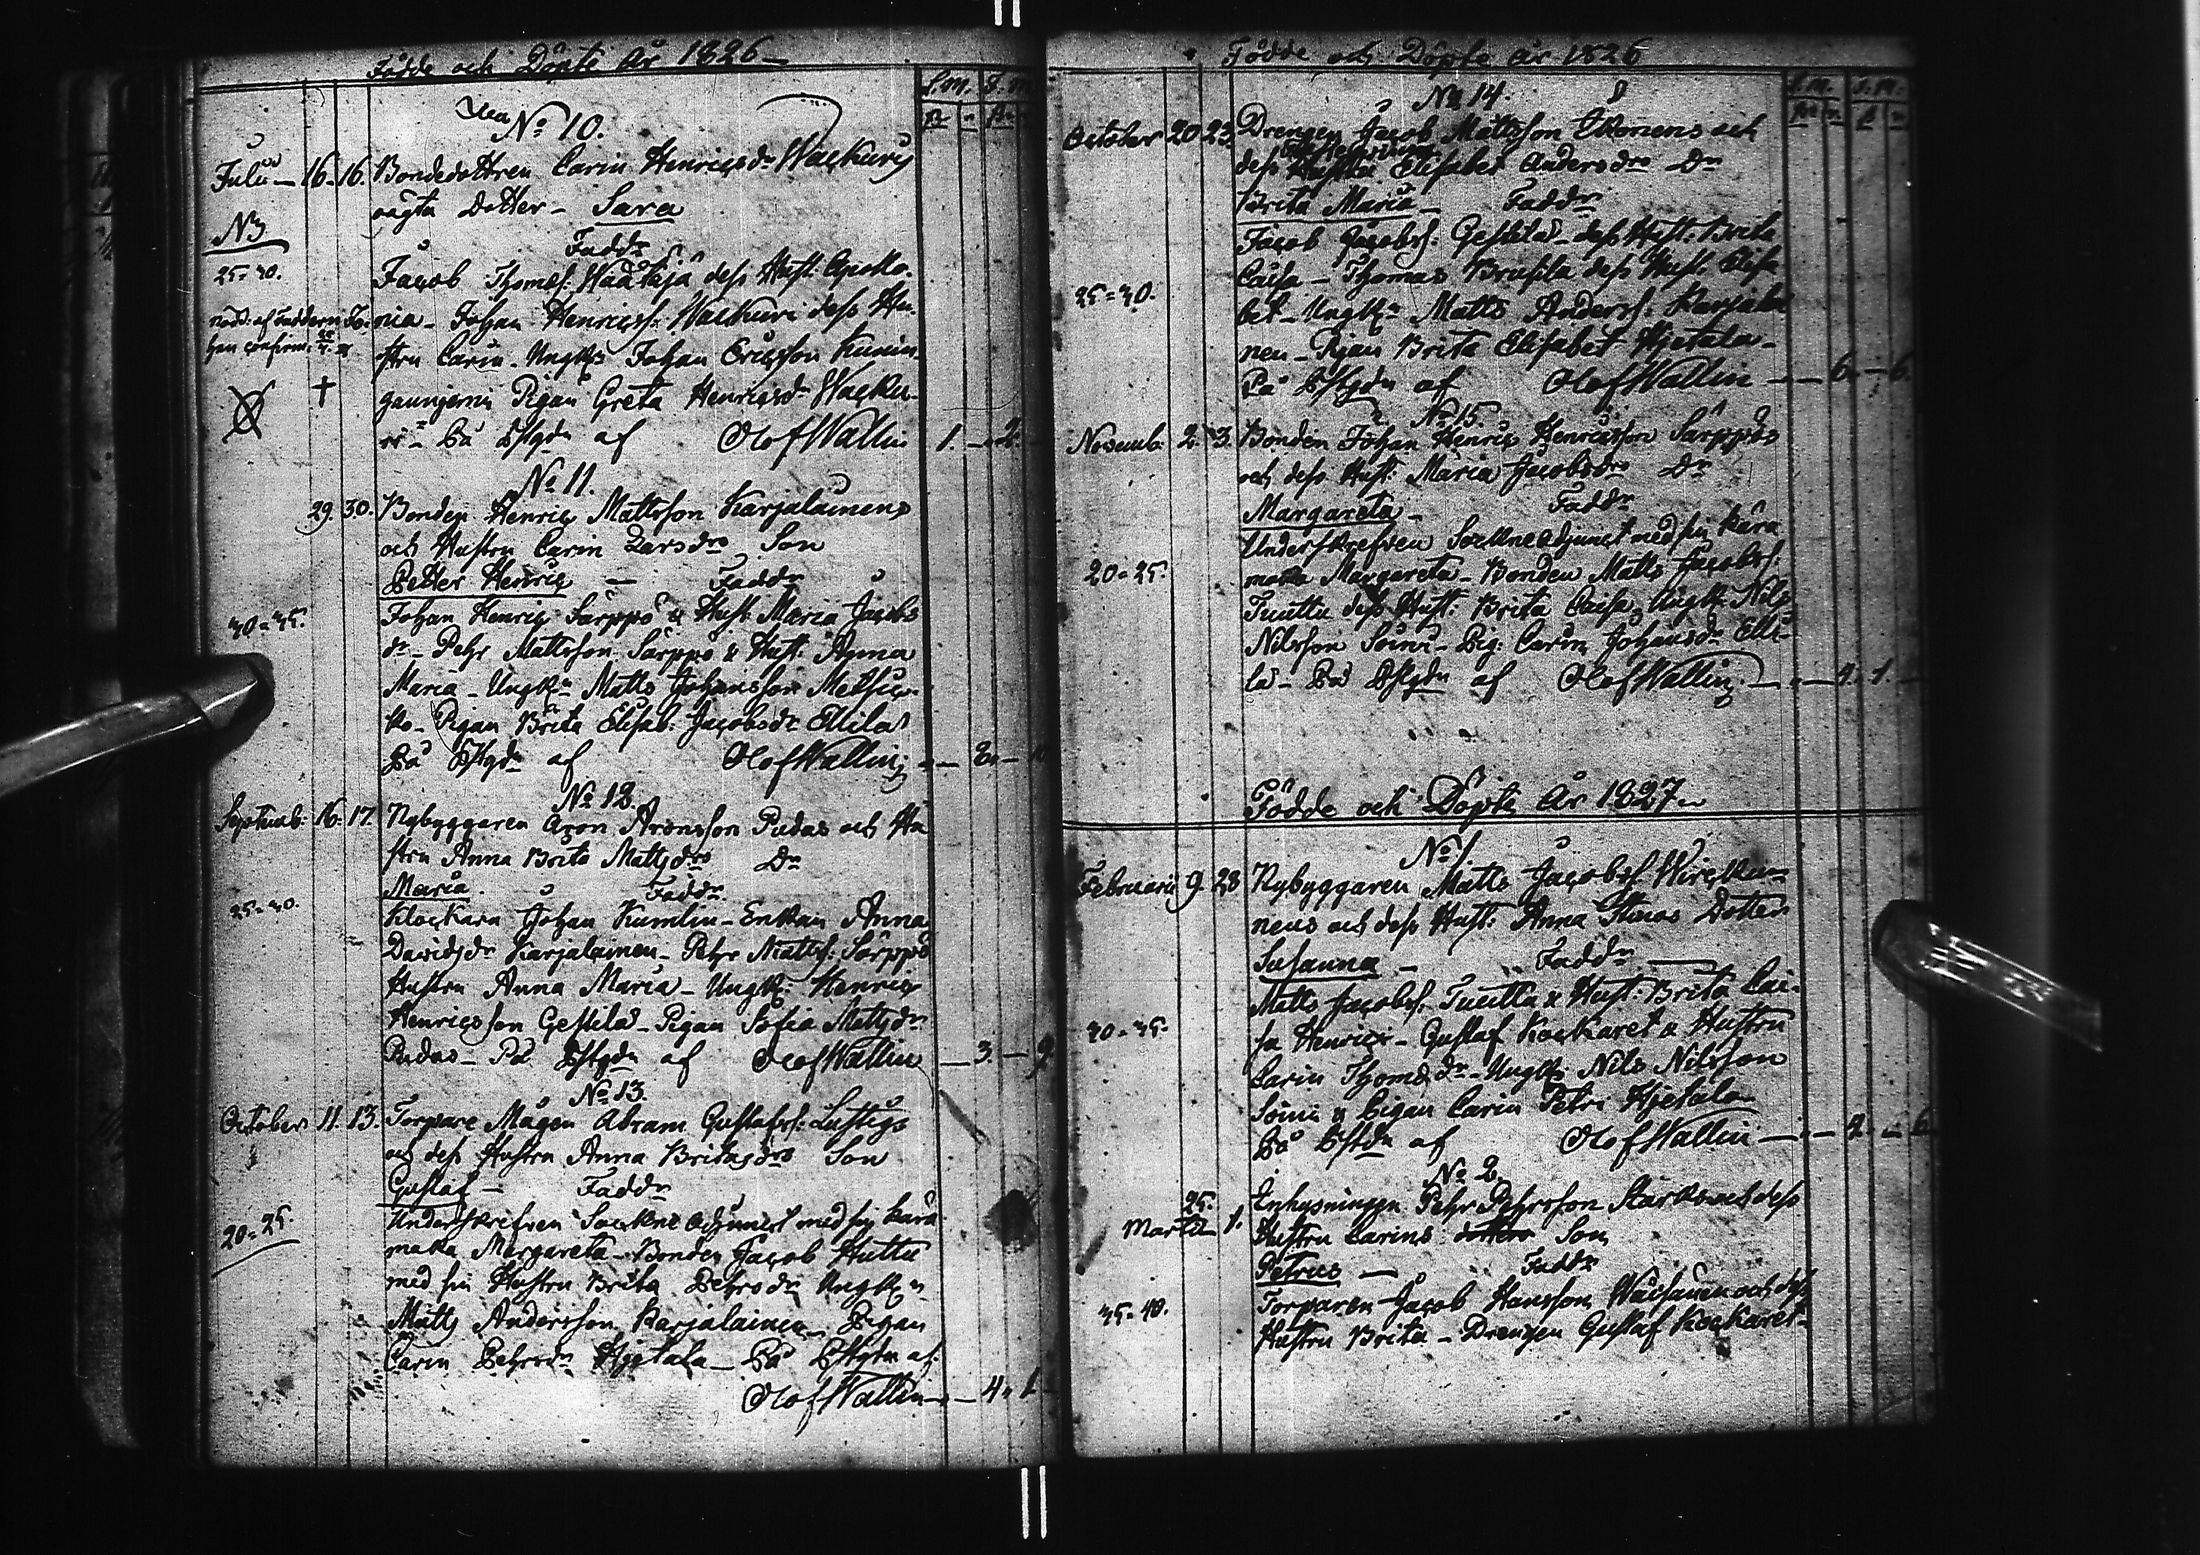 Födde och Döpte År 1826
S.m. S.m.
No 10.
Julii 16. 16. Bondedottren Carin Henricsdr Wackuris
oägta Dotter - Sara
N3
Faddr
25-30.
Jacob Thomæs: Haataja dess Hust. Apollo-
nia - Johan Henricss: Wackuri dess Hu-
stru Carin. Ungkn Johan Ericsson Kunin
gannjemi Pigan Greta Henricsdr Wacku-
ri - På Estgdn af Olof Wallin 1. - 2.
No 11.
29. 30. Bonden Henric Mattsson Karjalainens
och Hustru Carin Larsdrs Son
Petter Henric — Faddr
30-35.
Johan Henric Särppö & Hust. Maria Jacobs
dr - Pehr Mattsson Särppö & Hust. Anna
Maria - Ungkn Matts Johansson Metsjer-
ko - Pigan Brita Elisab: Jacobsdr Ellilä
På Estgdn af Olof Wallin
No 12
Septemb: 16. 17. Nybyggaren Aron Aronsson Pudas och Hu
stru Anna Brita Mattsdrs Dr
Maria. Faddr
25-30.
Klockarn Johan Kumlin - Enkan Anna
Davidsdr Karjalainen - Pehr Mattss: Särppö
Hustru Anna Maria - Ungk: Henric
Henricsson Gestilä - Pigan Sofia Mattsdr
Pudas - På Estgdn af Olof Wallin — 3. — 9.
No 13.
October 11. 13. Torpare Mågen Abram Gustafss: Lustigs
och dess Hustru Anna Britas Son
Gustaf - Faddr
20-25.
Underskrefven Sockne Adjunct med sin kära
maka Margareta - Bonden Jacob Huttu
med sin Hustru Brita Pehrsdr Ungkn
Matts Andersson Karjalainen - Pigan
Carin Pehrsdr Hjetala - På Estgdn af:
Olof Wallin — 4. 1.
Födde och Döpte År 1826
S.m. S.m.
No 14.
October 20 23 Drengen Jacob Mattsson Ikonens och
dess Hustru Elisabet Andersdrs Dr
Brita Maria - Faddr
Jacob Jacobss: Gestilä - dess Hust: Brita
Caisa - Thomas Brusila dess Hust. Elisa
25-30.
bet - Ungkn Matts Anderss: Karjalai
nen - Pigan Brita Elisabet Hjetala -
På Estgdn af Olof Wallin — 6. — 6.
No 15.
Novemb: 2. 3. Bonden Johan Henric Henricsson Särppös
och dess Hust: Maria Jacobsdrs Dr
Margareta - Faddr
Underskrefven Sockneadjunct med sin kära
20-25.
maka Margareta - Bonden Matts Jacobss:
Tuuttu dess Hust: Brita Caisa - Ungk: Nils
Nilsson Soini - Pig: Carin Johansdr Elli-
lä - På Estgdn af Olof Wallin — 4. 1.
Födde och Döpte År 1827
No 1.
Februarii 9 28 Nybyggaren Matts Jacobss Wirckun-
nens och dess Hust: Anna Dotter
Susanna - Faddr —
Matts Jacobss: Tuuttu & Hust: Brita Cai-
30-35.
sa Henrics - Gustaf Kockaret & Hustru
Carin Thomædr - Ungk: Nils Nilsson
Soini & Pigan Carin Petri Hjetala
På Estgdn af Olof Wallin — 2. — 6.
No 2
25.
Martii 1. Inhysningen Pehr Pehrsson Starks och dess
Hustru Carins Son
Petrus — Faddr
35-40.
Torparen Jacob Hansson Wäisänen och dess
Hustru Brita - Drengen Gustaf Kockaret